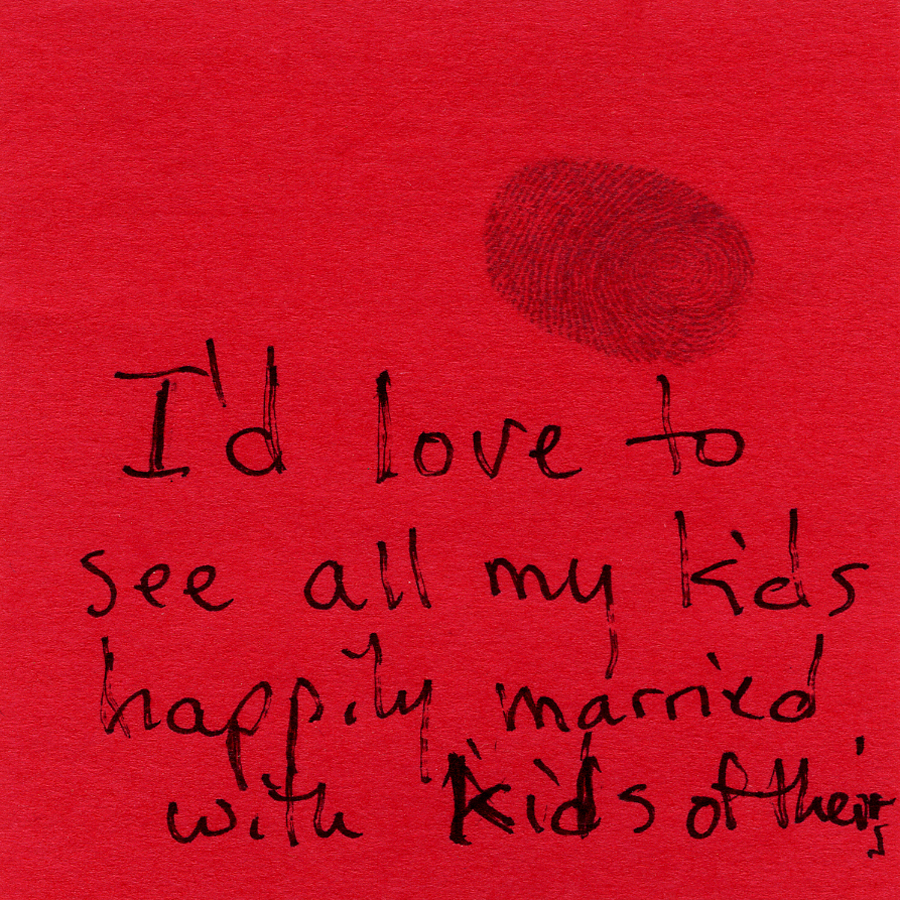 I'd love to
see all my kids
happily married
with kids of theirs